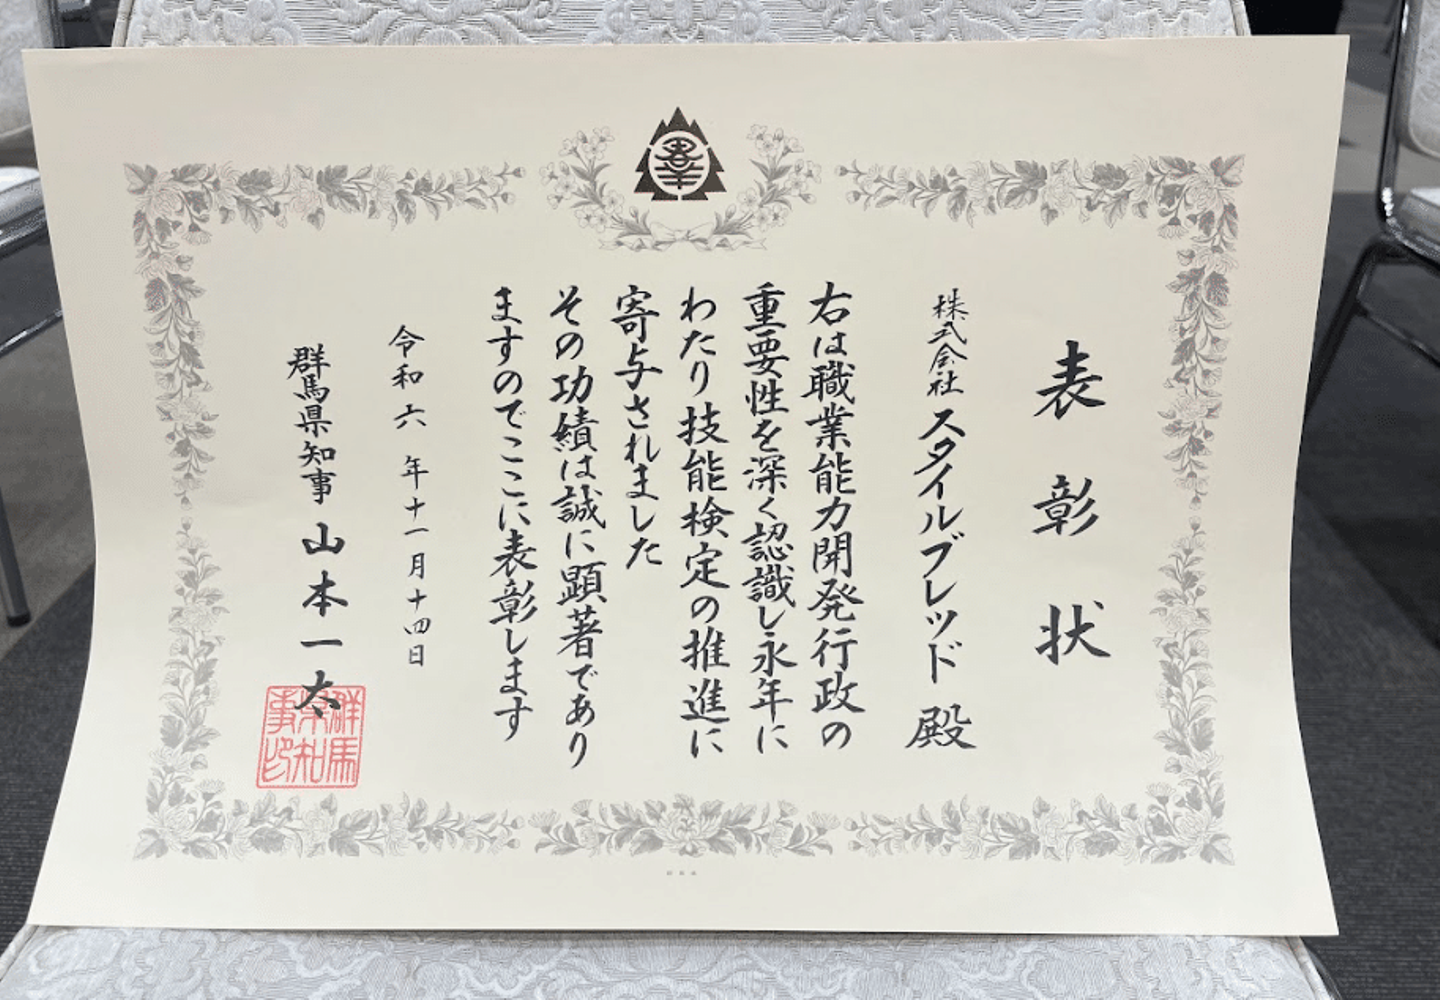 表彰状
株式会社スタイルブレッド 殿
右は職業能力開発行政の
重要性を深く認識し永年に
わたり技能検定の推進に
寄与されました
その功績は誠に顕著であり
ますのでここに表彰します
令和六年十一月十四日
群馬県知事 山本一太
群馬
県知
事印